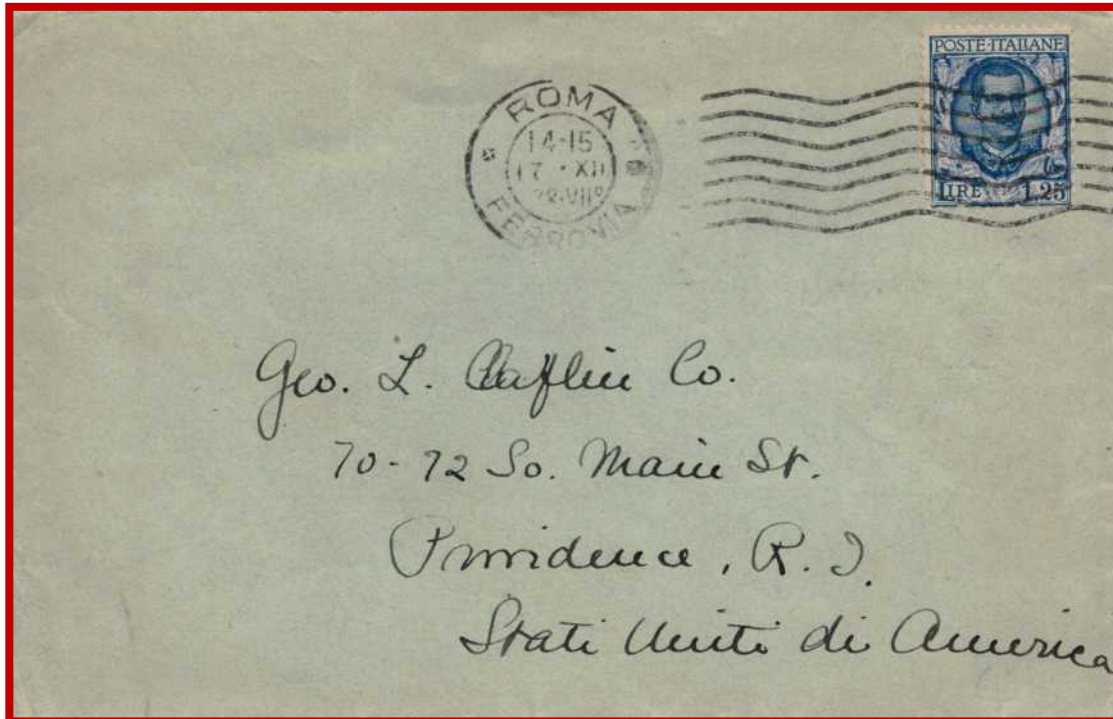 POSTE·ITALIANE
LIRE 1.25
ROMA
14-15
17 · XII
28·VII°
FERROVIA
Geo. L. Claflin Co.
70-72 So. Main St.
Providence, R. I.
Stati Uniti di America